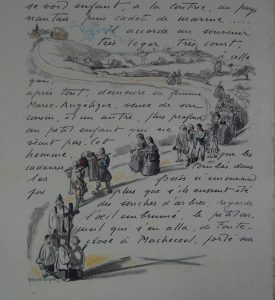 se voit enfant, à la Loutrie, au pays
nantais, puis cadet de marine .....
Il accorde un souvenir
très léger, très court, à celle
qui,
après tout, demeure sa femme,
Marie-Angélique, veuve de son
cousin, et un autre, plus profond,
au petit enfant qui ne
vécut pas. Cet
homme, que les
cadavres tombés dans
les fossés n'émouvaient
pas plus que s'ils eussent été
des souches d'arbres, regarde
l'œil embrumé, le petit cer-
cueil qui s'en alla, de Foute-
close à Machecoul, porté sur